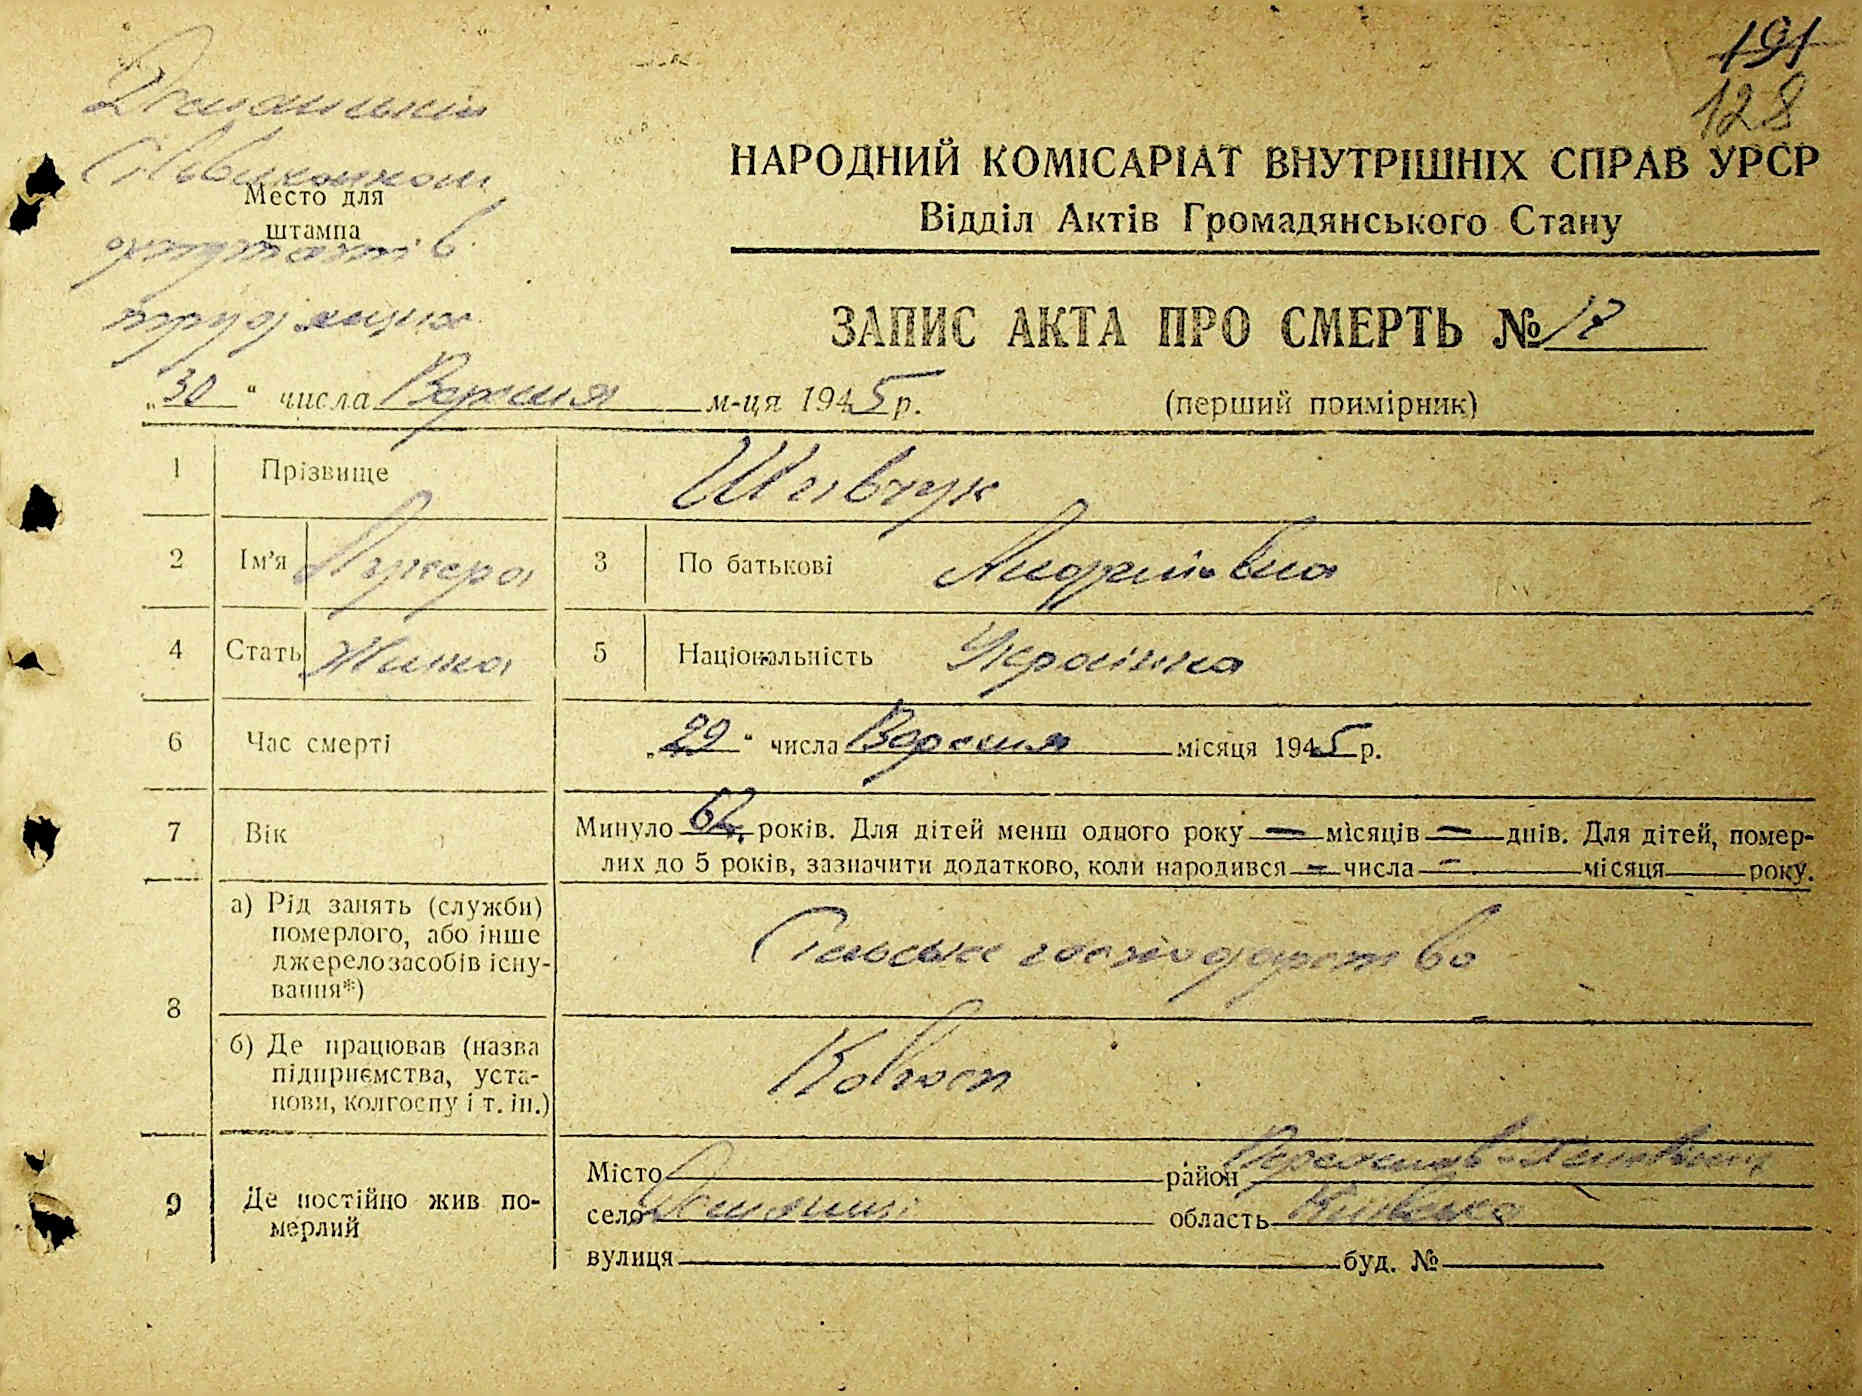 191
128
Дем'янський
Сільвиконком
Место для
штампа
депутатів
трудящих
НАРОДНИЙ КОМІСАРІАТ ВНУТРІШНІХ СПРАВ УРСР
Відділ Актів Громадянського Стану
ЗАПИС АКТА ПРО СМЕРТЬ №17
„30“ числа Вересня м-ця 1945 р.
(перший примірник)
1 Прізвище Шевчук
2 Ім'я Лукера 3 По батькові Андріївна
4 Стать Жінка 5 Національність Українка
6 Час смерті „29“ числа Вересня місяця 1945 р.
7 Вік Минуло 62, років. Для дітей менш одного року — місяців — днів. Для дітей, помер-
лих до 5 років, зазначити додатково, коли народився — числа — місяця року.
8 а) Рід занять (служби)
померлого, або інше
джерело засобів існу-
вання*)
Сільське господарство
б) Де працював (назва
підприємства, уста-
нови, колгоспу і т. ін.)
Колгосп
9 Де постійно жив по-
мерлий
Місто район Переяслав-Хмельницький
село Дем'янці область Київська
вулиця буд. №